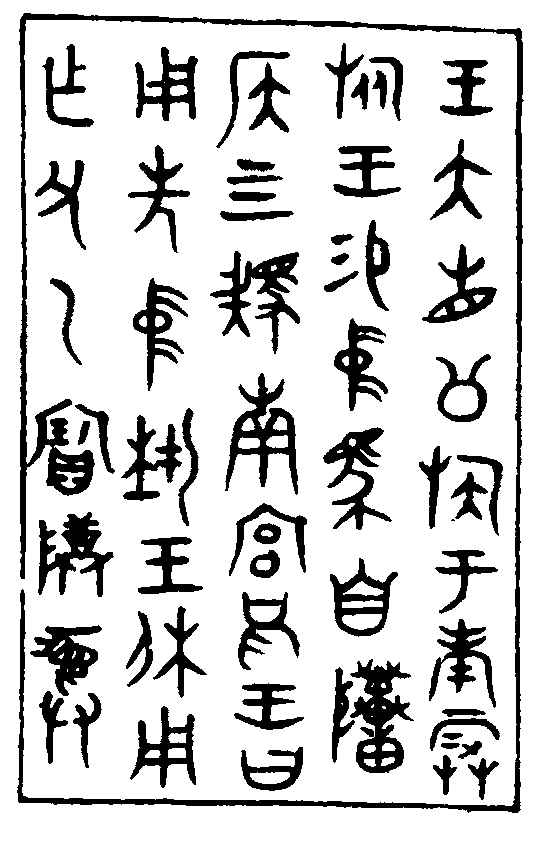 王大省公族于庚振
旅王易中馬自隯
侯四南宮貺王曰
用先中埶王休用
作父乙寶尊彝